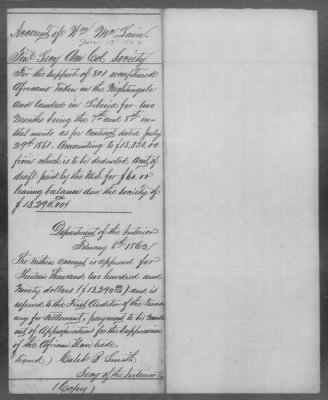 Account of Wm McLain
Jan 13 1862
Finl Secy Am Col. Society
For the support of 801 recaptured
Africans taken in the Nightingale
and landed in Liberia for two
months being the 7th and 8th in-
stalments as per contract dated July
29th 1861. Amounting to $13,350.00
from which is to be deducted amt of
draft paid by the U.S. for $60.00
leaving balance due the society of
$13,290.00
Department of the Interior
February 6th 1862
The within account is approved for
thirteen thousand two hundred and
ninety dollars ($13,290 00/100) and is
referred to the First Auditor of the Treas
ury for settlement, payment to be made
out of Appropriations for the suppression
of the African Slave trade.
(Signed) Caleb B Smith
Secy of the Interior
(Copy)